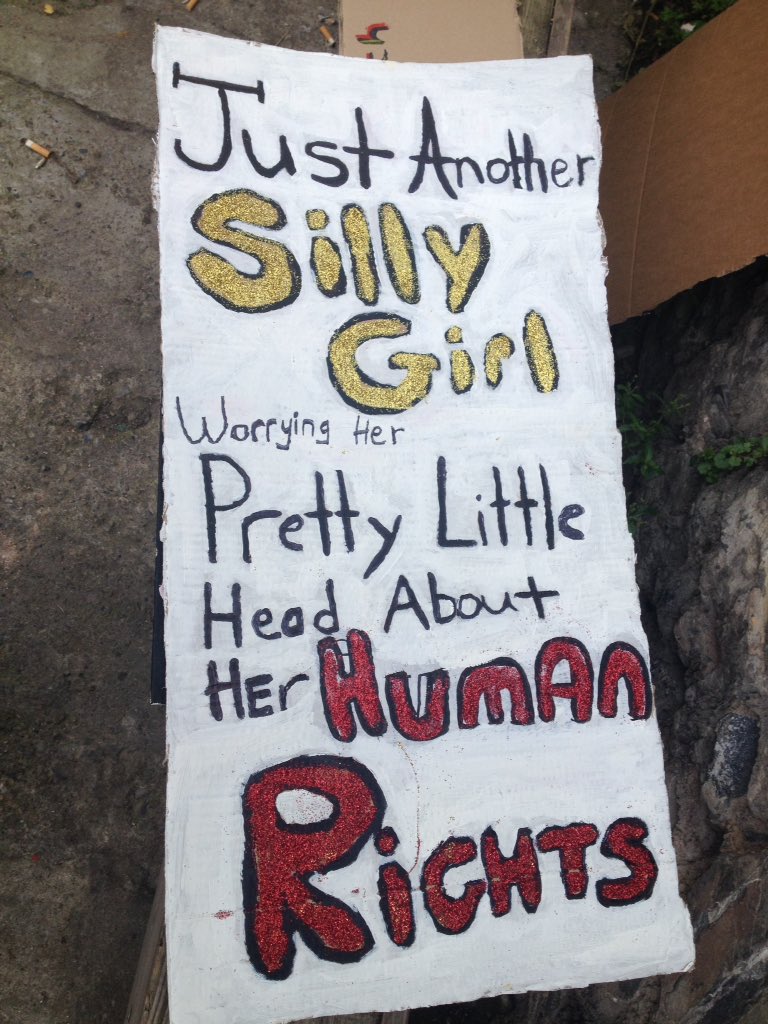 Just Another
Silly
Girl
Worrying Her
Pretty Little
Head About
Her Human
Rights